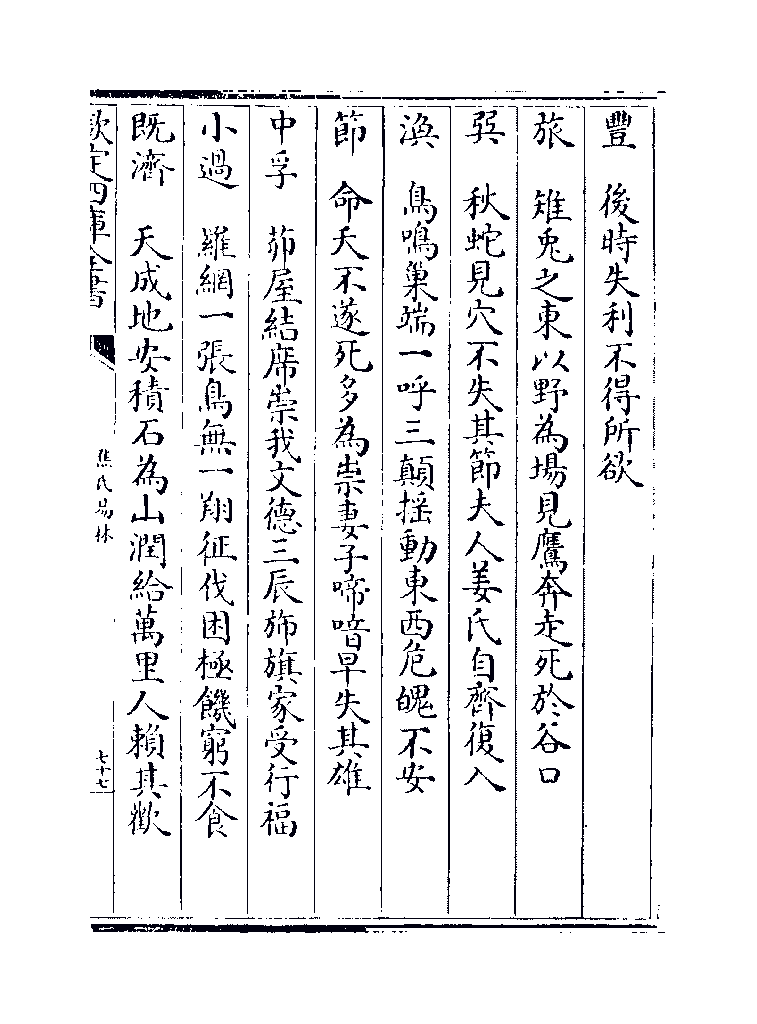 豐　後時失利不得所欲
旅　雉兎之東以野為場見鷹奔走死於谷口
巽　秋蛇見穴不失其節夫人姜氏自齊復入
渙　鳥鳴巢端一呼三顛揺動東西危魄不安
節　命夭不遂死多為祟妻子啼喑早失其雄
中孚　茆屋結席崇我文德三辰斾旗家受行福
小過　羅網一張鳥無一翔征伐困極饑窮不食
既濟　天成地安積石為山潤給萬里人賴其歡
欽定四庫全書
焦氏易林
七十七